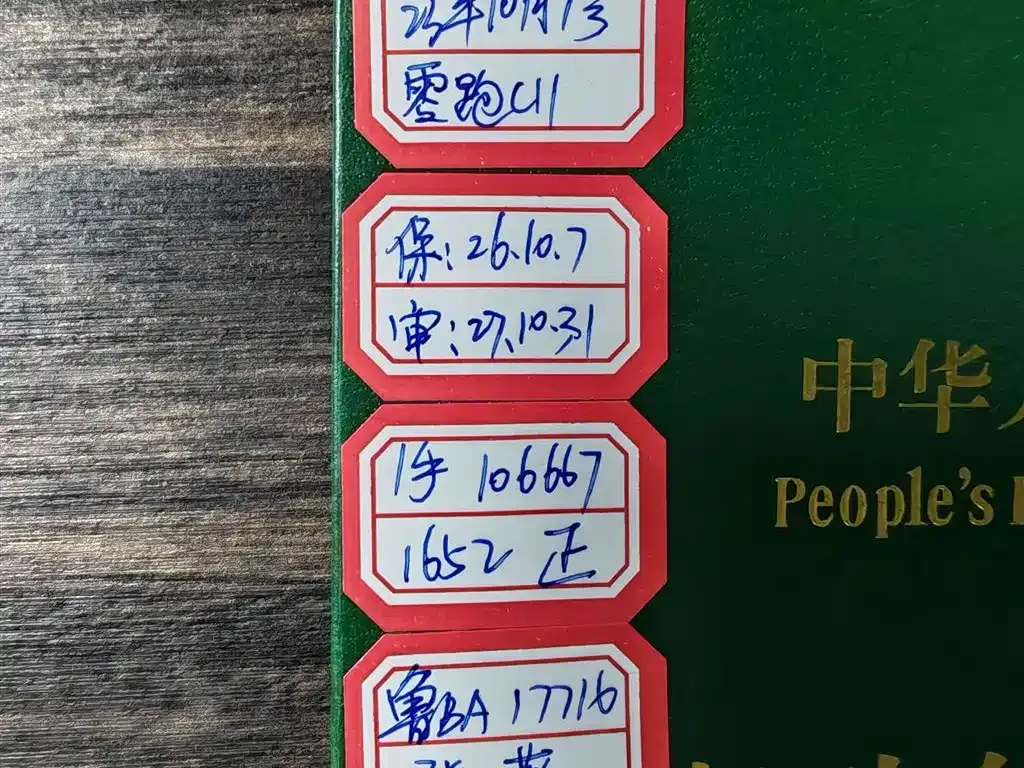 23年10月1号
零跑C11
保:26.10.7
审:27.10.31
1手 106667
1652 正
鲁BA17716
中华
People's